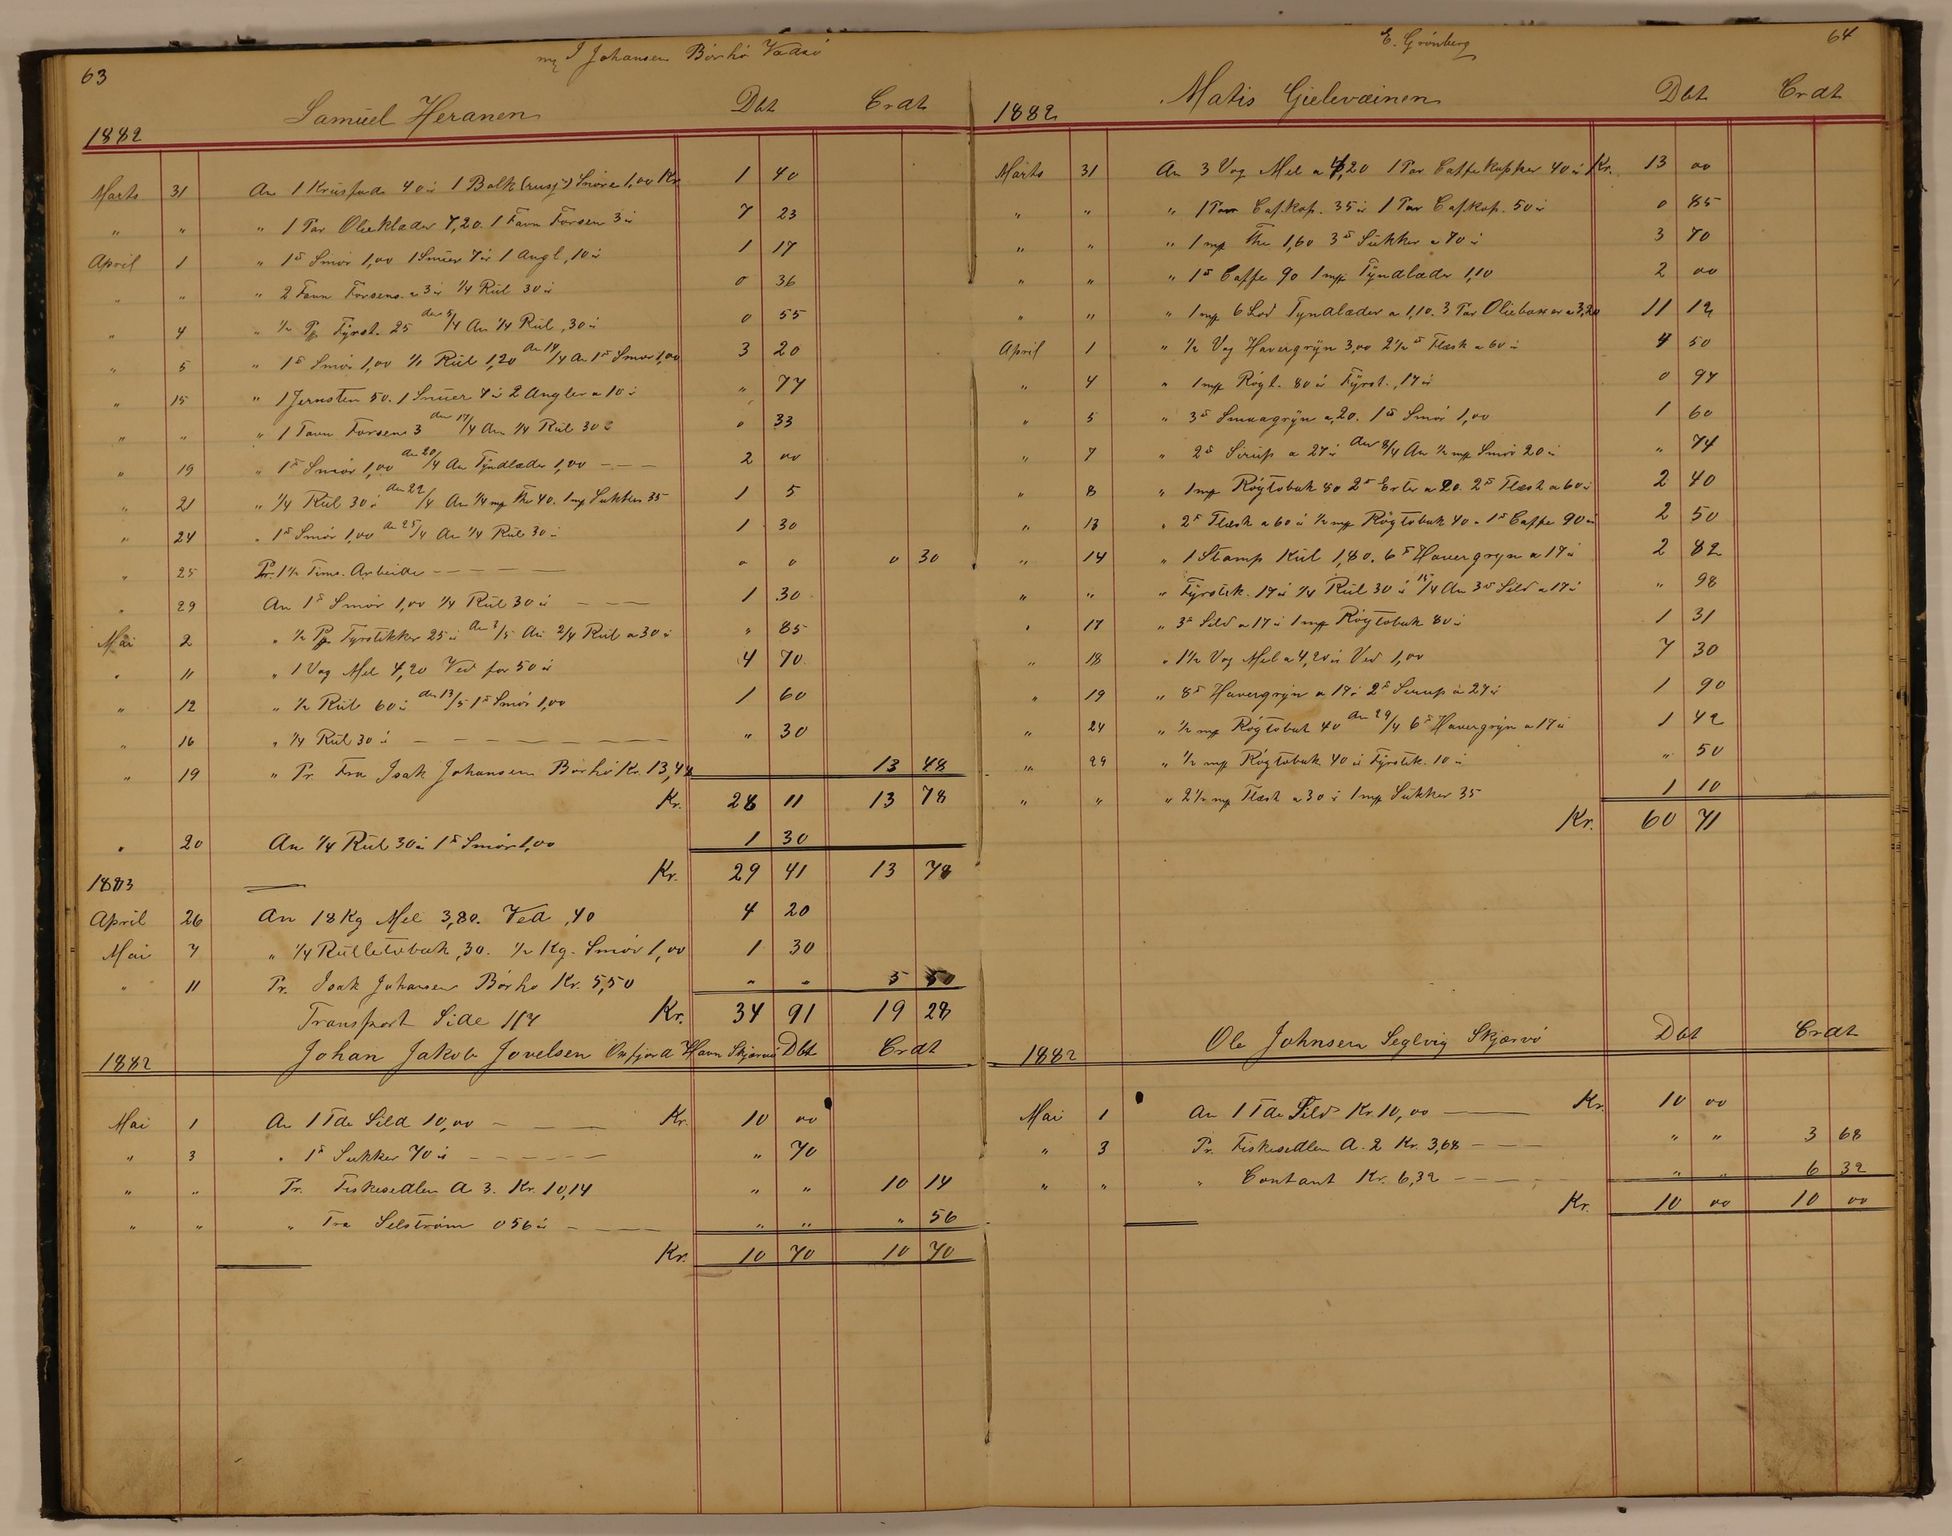 63
J Johansen Børhø Vadsø
Samuel Heranen Dbt Crdt
1882
Marts 31 An 1 Krusfade 40 ø 1 Balk (rusj) Snøre 1,00 Kr 1 40
" " " 1 Par Olieklæder 7,20. 1 Favn Forsen 3 ø 7 23
April 1 " 1 ℔ Smør 1,00 1 Snuer 7 ø 1 Angl ,10 ø 1 17
" " " 2 Favn Forsens. a 3 ø 1/4 Rul 30 ø 0 36
" 4 " 1/2 Pg Fyrst. 25 den 5/4 An 1/4 Rul ,30 ø 0 55
" 5 " 1 ℔ Smør 1,00 1/1 Rul 1,20 den 14/4 An 1 ℔ Smør 1,00 3 20
" 15 " 1 Jernsten 50. 1 Snuer 7 ø 2 Angler a 10 ø " 77
" " " 1 Favn Forsens 3 den 17/4 An 1/4 Rul 30 0 33
" 19 " 1 ℔ Smør 1,00 den 20/4 An Tyndlæder 1,00 - - - 2 00
" 21 " 1/4 Rul 30 ø den 22/4 An 1/4 mp The 40. 1 mp Sukker 35 1 5
" 24 " 1 ℔ Smør 1,00 den 25/4 An 1/4 Rul 30 ø 1 30
" 25 Pr. 1 1/2 Tims. Arbeide - - - - " " 0 30
" 29 An 1 ℔ Smør 1,00 1/4 Rul 30 ø - - - 1 30
Mai 2 " 1/2 Pg Fyrstikker 25 ø den 3/5 An 2/4 Rul a 30 ø " 85
" 11 " 1 Vog Mel 4,20 Ved for 50 ø 4 70
" 12 " 1/2 Rul 60 ø den 13/5 1 ℔ Smør 1,00 1 60
" 16 " 1/4 Rul 30 ø - - - - - " 30
" 19 " Pr. Fra Isak Johansen Børhø Kr. 13,48 13 48
Kr. 28 11 13 78
" 20 An 1/4 Rul 30 ø 1 ℔ Smør 1,00 1 30
Kr. 29 41 13 78
1883
April 26 An 18 Kg Mel 3,80. Ved ,40 4 20
Mai 7 " 1/4 Rulletobak ,30. 1/2 Kg. Smør 1,00 1 30
" 11 Pr. Isak Johansen Børhø Kr. 5,50 " " 5 50
Transport Side 117 Kr. 34 91 19 28
Johan Jakob Jovelsen Onfjord Havn Skjærvø Dbt Crdt
1882
Mai 1 An 1 Tde Sild 10,00 - - - Kr. 10 00
" 3 " 1 ℔ Sukker 70 ø - - - - - " 70
" " Pr. Fiskesedlen A 3. Kr. 10,14 " " 10 14
" " " Fra Selstrøm 0 56 ø - - - " " " 56
Kr. 10 70 10 70
E. Grönberg
64
Matis Gielevæinen Dbt Crdt
1882
Marts 31 An 3 Vog Mel a 4,20 1 Par Caffekopper 40 ø Kr. 13 00
" " " 1 Par Cafkop. 35 ø 1 Par Cafkop. 50 ø 0 85
" " " 1 mp The 1,60 3 ℔ Sukker a 70 ø 3 70
" " " 1 ℔ Caffe 90 1 mp Tyndlæder 1,10 2 00
" " " 1 mp 6 Lod Tyndlæder a 1,10. 3 Par Oliebøxer a 3,20 11 12
April 1 " 1/2 Vog Havergryn 3,00 2 1/2 ℔ Flæsk a 60 ø 4 50
" 4 " 1 mp Røgt. 80 ø Fyrst. ,17 ø 0 97
" 5 " 3 ℔ Smaagryn a ,20. 1 ℔ Smør 1,00 1 60
" 7 " 2 ℔ Sirup a 27 ø den 8/4 An 1/2 mp Smør 20 ø " 74
" 8 " 1 mp Røgtobak 80 2 ℔ Erter a 20. 2 ℔ Flæsk a 60 ø 2 40
" 13 " 2 ℔ Flæsk a 60 ø 1/2 mp Røgtobak 40 ø 1 ℔ Caffe 90 ø 2 50
" 14 " 1 Stamp Kul 1,80. 6 ℔ Havergryn a 17 ø 2 82
" " " Fyrstik. 17 ø 1/4 Rul 30 ø 15/4 An 3 ℔ Sild a 17 ø " 98
" 17 " 3 ℔ Sild a 17 ø 1 mp Røgtobak 80 ø 1 31
" 18 " 1 1/2 Vog Mel a 4,20 ø Ved 1,00 7 30
" 19 " 8 ℔ Havergryn a 17 ø 2 ℔ Sirup a 27 ø 1 90
" 24 " 1/2 mp Røgtobak 40 den 29/4 6 ℔ Havergryn a 17 ø 1 42
" 29 " 1/2 mp Røgtobak 40 ø Fyrstik. 10 ø " 50
" " " 2 1/2 mp Flæsk a 30 ø 1 mp Sukker 35 1 10
Kr. 60 71
Ole Johnsen Seglvig Skjærvø Dbt Crdt
1882
Mai 1 An 1 Tde Sild Kr. 10,00 - Kr. 10 00
" 3 Pr. Fiskesedlen A. 2 Kr. 3,68 - - - " " 3 68
" " " Contant Kr. 6,32 - - - " " 6 32
Kr. 10 00 10 00